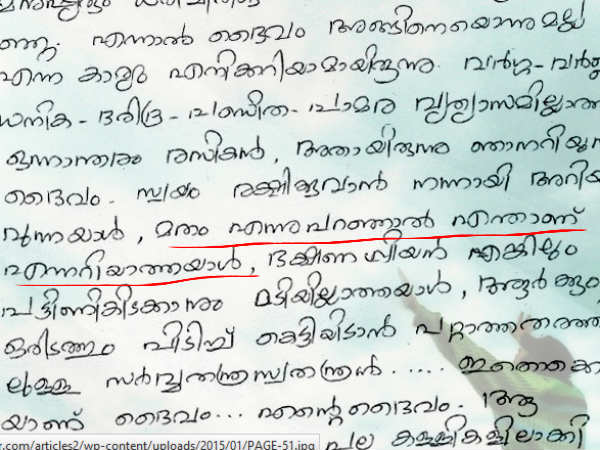 ഞ്ഞു. എന്നാൽ ദൈവം അങ്ങിനെയൊന്നുമല്ല
എന്ന കാര്യം എനിക്കറിയാമായിരുന്നു. വർഗ്ഗ-
ധനിക - ദരിദ്ര - പണ്ഡിത - പാമര വ്യത്യാസമില്ലാത്ത
ഒന്നാന്തരം രസികൻ, അതായിരുന്നു ഞാനറിയുന്ന
ദൈവം. സ്വയം രക്ഷിക്കുവാൻ നന്നായി അറിയ
വുന്നയാൾ, മതം എന്നുപറഞ്ഞാൽ എന്താണ്
എന്നറിയാത്തയാൾ, ഭക്ഷണപ്രിയൻ എങ്കിലും
പട്ടിണികിടക്കാനും മടിയില്ലാത്തയാൾ, ആർക്കും
ഒരിടത്തും പിടിച്ച് കെട്ടിയിടാൻ പറ്റാത്തതരത്തി
ലുള്ള സർവ്വതന്ത്രസ്വതന്ത്രൻ..... ഇതൊക്കെ
യാണ് ദൈവം... എന്റെ ദൈവം. ആ
r.com/articles2/wp-content/uploads/2015/01/PAGE-51.jpg പല കള്ളികളിലാക്കി